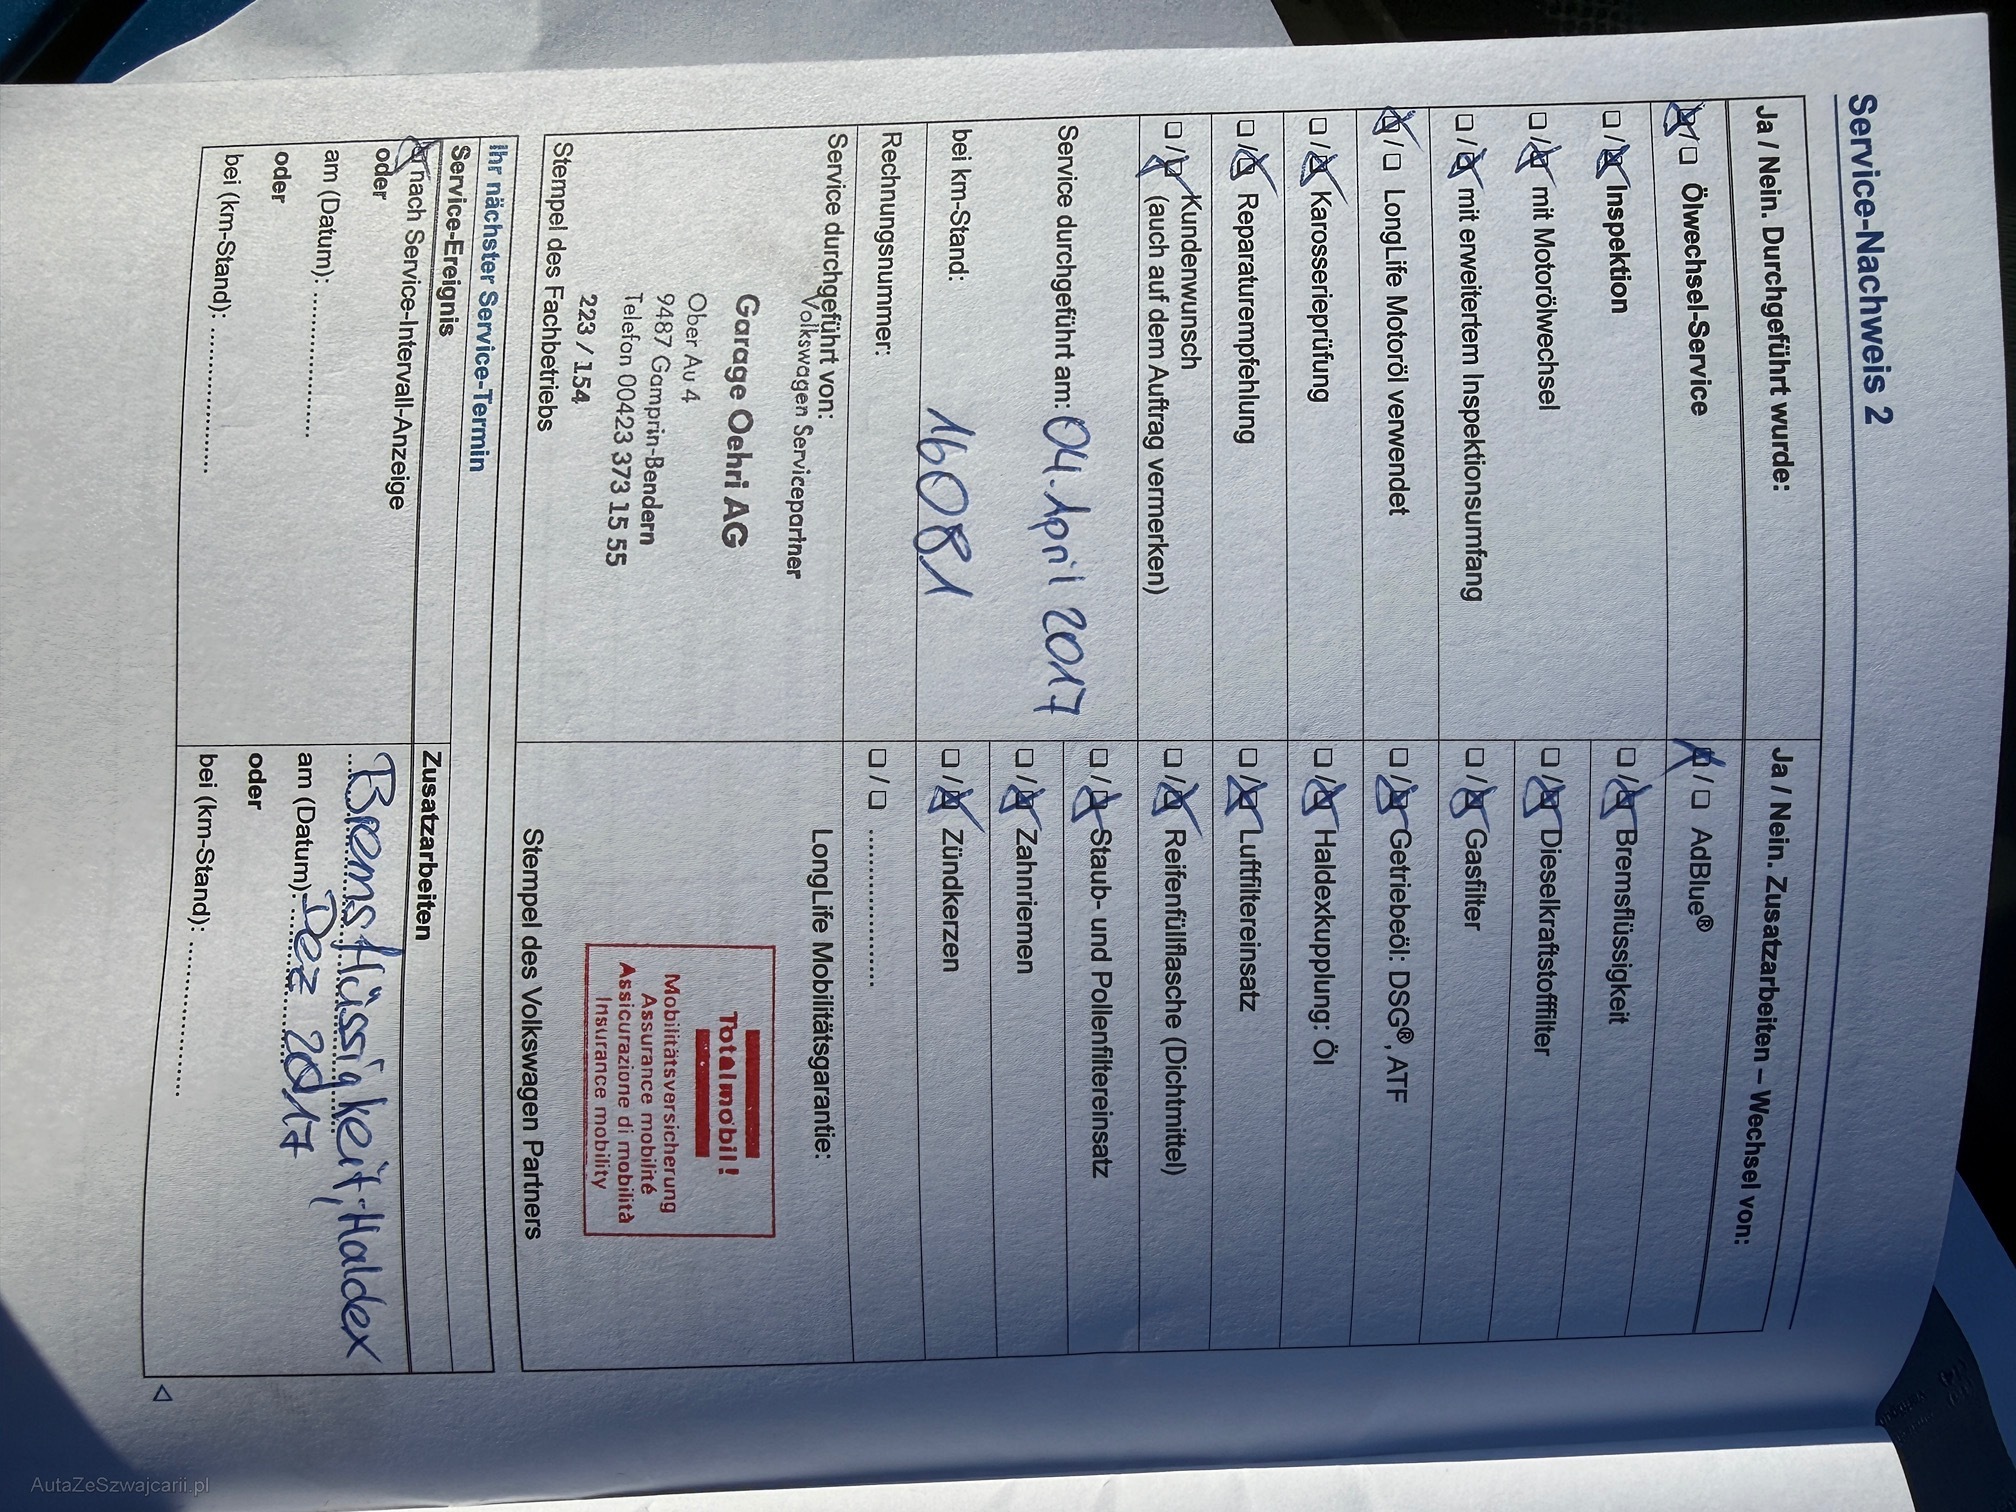 Service-Nachweis 2
Ja / Nein. Durchgeführt wurde:
☒/☐ Ölwechsel-Service
☐/☒ Inspektion
☐/☒ mit Motorölwechsel
☐/☒ mit erweitertem Inspektionsumfang
☒/☐ LongLife Motoröl verwendet
☐/☒ Karosserieprüfung
☐/☒ Reparaturempfehlung
☐/☒ Kundenwunsch
(auch auf dem Auftrag vermerken)
Service durchgeführt am: 04. April 2017
bei km-Stand: 16081
Rechnungsnummer:
Service durchgeführt von:
Volkswagen Servicepartner
Garage Oehri AG
Ober Au 4
9487 Gamprin-Bendern
Telefon 00423 373 15 55
223 / 154
Stempel des Fachbetriebs
Ja / Nein. Zusatzarbeiten – Wechsel von:
☒/☐ AdBlue®
☐/☒ Bremsflüssigkeit
☐/☒ Dieselkraftstofffilter
☐/☒ Gasfilter
☐/☒ Getriebeöl: DSG®, ATF
☐/☒ Haldexkupplung: Öl
☐/☒ Luftfiltereinsatz
☐/☒ Reifenfüllflasche (Dichtmittel)
☐/☒ Staub- und Pollenfiltereinsatz
☐/☒ Zahnriemen
☐/☒ Zündkerzen
☐/☐ ..................
LongLife Mobilitätsgarantie:
Totalmobil!
Mobilitätsversicherung
Assurance mobilité
Assicurazione di mobilità
Insurance mobility
Stempel des Volkswagen Partners
Ihr nächster Service-Termin
Service-Ereignis
☒ nach Service-Intervall-Anzeige
oder
am (Datum): ..................
oder
bei (km-Stand): ..................
Zusatzarbeiten
Bremsflüssigkeit, Haldex
am (Datum): Dez 2017
oder
bei (km-Stand): ..................
AutaZeSzwajcarii.pl